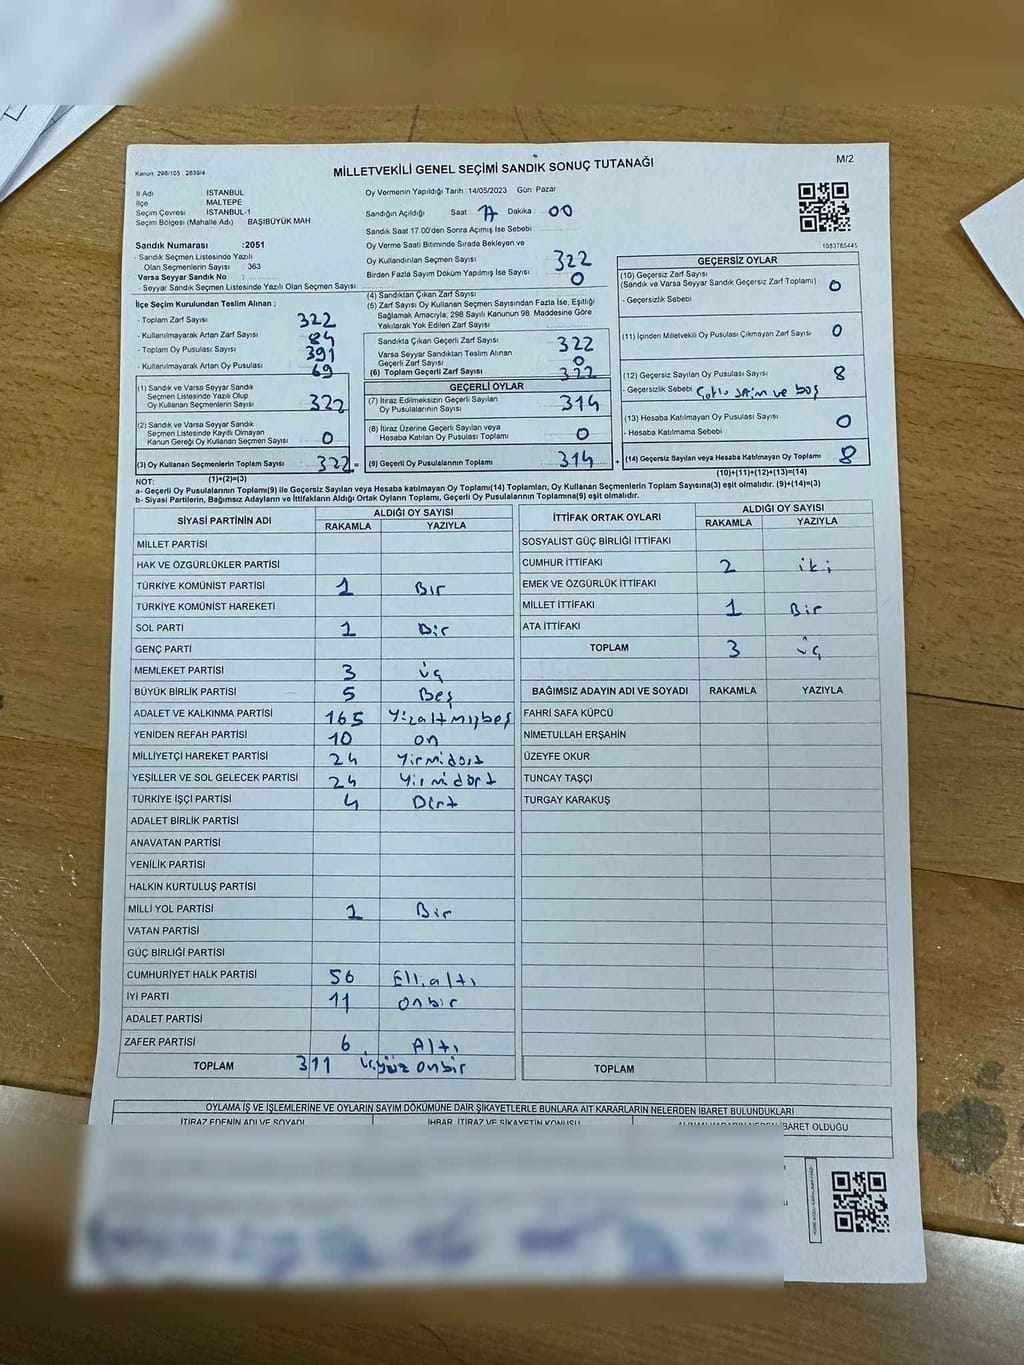 MİLLETVEKİLİ GENEL SEÇİMİ SANDIK SONUÇ TUTANAĞI
M/2
Kanun: 298/105 , 2839/4
İl Adı İSTANBUL
İlçe MALTEPE
Seçim Çevresi İSTANBUL-1
Seçim Bölgesi (Mahalle Adı) BAŞIBÜYÜK MAH
Sandık Numarası :2051
- Sandık Seçmen Listesinde Yazılı
Olan Seçmenlerin Sayısı : 363
Varsa Seyyar Sandık No :
- Seyyar Sandık Seçmen Listesinde Yazılı Olan Seçmen Sayısı
Oy Vermenin Yapıldığı Tarih :14/05/2023 Gün: Pazar
Sandığın Açıldığı Saat Dakika 00
Sandık Saat 17.00'den Sonra Açımış İse Sebebi
Oy Verme Saati Bitiminde Sırada Bekleyen ve
Oy Kullandırılan Seçmen Sayısı 322
Birden Fazla Sayım Döküm Yapılmış İse Sayısı 0
1083765445
İlçe Seçim Kurulundan Teslim Alınan ;
- Toplam Zarf Sayısı 322
- Kullanılmayarak Artan Zarf Sayısı 84
- Toplam Oy Pusulası Sayısı 391
- Kullanılmayarak Artan Oy Pusulası 69
(1) Sandık ve Varsa Seyyar Sandık
Seçmen Listesinde Yazılı Olup
Oy Kullanan Seçmenlerin Sayısı 322
(2) Sandık ve Varsa Seyyar Sandık
Seçmen Listesinde Kayıtlı Olmayan
Kanun Gereği Oy Kullanan Seçmen Sayısı 0
(3) Oy Kullanan Seçmenlerin Toplam Sayısı 322 =
(1)+(2)=(3)
(4) Sandıktan Çıkan Zarf Sayısı
(5) Zarf Sayısı Oy Kullanan Seçmen Sayısından Fazla İse, Eşitliği
Sağlamak Amacıyla, 298 Sayılı Kanunun 98. Maddesine Göre
Yakılarak Yok Edilen Zarf Sayısı
Sandıkta Çıkan Geçerli Zarf Sayısı 322
Varsa Seyyar Sandıktan Teslim Alınan
Geçerli Zarf Sayısı 0
(6) Toplam Geçerli Zarf Sayısı 322
GEÇERLİ OYLAR
(7) İtiraz Edilmeksizin Geçerli Sayılan
Oy Pusulalarının Sayısı 314
(8) İtiraz Üzerine Geçerli Sayılan veya
Hesaba Katılan Oy Pusulası Toplamı 0
(9) Geçerli Oy Pusulalarının Toplamı 314 +
GEÇERSİZ OYLAR
(10) Geçersiz Zarf Sayısı
(Sandık ve Varsa Seyyar Sandık Geçersiz Zarf Toplamı) 0
- Geçersizlik Sebebi
(11) İçinden Milletvekili Oy Pusulası Çıkmayan Zarf Sayısı 0
(12) Geçersiz Sayılan Oy Pusulası Sayısı 8
- Geçersizlik Sebebi ve boş
(13) Hesaba Katılmayan Oy Pusulası Sayısı 0
- Hesaba Katılmama Sebebi
(14) Geçersiz Sayılan veya Hesaba Katılmayan Oy Toplamı 8
(10)+(11)+(12)+(13)=(14)
NOT:
a- Geçerli Oy Pusulalarının Toplamı(9) ile Geçersiz Sayılan veya Hesaba katılmayan Oy Toplamı(14) Toplamları, Oy Kullanan Seçmenlerin Toplam Sayısına(3) eşit olmalıdır. (9)+(14)=(3)
b- Siyasi Partilerin, Bağımsız Adayların ve İttifakların Aldığı Ortak Oyların Toplamı, Geçerli Oy Pusulalarının Toplamına(9) eşit olmalıdır.
SİYASİ PARTİNİN ADI ALDIĞI OY SAYISI
RAKAMLA YAZIYLA
MİLLET PARTİSİ
HAK VE ÖZGÜRLÜKLER PARTİSİ
TÜRKİYE KOMÜNİST PARTİSİ 1 Bir
TÜRKİYE KOMÜNİST HAREKETİ
SOL PARTİ 1 Bir
GENÇ PARTİ
MEMLEKET PARTİSİ 3 üç
BÜYÜK BİRLİK PARTİSİ 5 Beş
ADALET VE KALKINMA PARTİSİ 165 Yüzaltmışbeş
YENİDEN REFAH PARTİSİ 10 on
MİLLİYETÇİ HAREKET PARTİSİ 24 Yirmidört
YEŞİLLER VE SOL GELECEK PARTİSİ 24 Yirmidört
TÜRKİYE İŞÇİ PARTİSİ 4 Dört
ADALET BİRLİK PARTİSİ
ANAVATAN PARTİSİ
YENİLİK PARTİSİ
HALKIN KURTULUŞ PARTİSİ
MİLLİ YOL PARTİSİ 1 Bir
VATAN PARTİSİ
GÜÇ BİRLİĞİ PARTİSİ
CUMHURİYET HALK PARTİSİ 56 Elli altı
İYİ PARTİ 11 onbir
ADALET PARTİSİ
ZAFER PARTİSİ 6 Altı
TOPLAM 311 üçyüz onbir
İTTİFAK ORTAK OYLARI ALDIĞI OY SAYISI
RAKAMLA YAZIYLA
SOSYALİST GÜÇ BİRLİĞİ İTTİFAKI
CUMHUR İTTİFAKI 2 iki
EMEK VE ÖZGÜRLÜK İTTİFAKI
MİLLET İTTİFAKI 1 Bir
ATA İTTİFAKI
TOPLAM 3 üç
BAĞIMSIZ ADAYIN ADI VE SOYADI RAKAMLA YAZIYLA
FAHRİ SAFA KÜPCÜ
NİMETULLAH ERŞAHİN
ÜZEYFE OKUR
TUNCAY TAŞÇI
TURGAY KARAKUŞ
TOPLAM
OYLAMA İŞ VE İŞLEMLERİNE VE OYLARIN SAYIM DÖKÜMÜNE DAİR ŞİKAYETLERLE BUNLARA AİT KARARLARIN NELERDEN İBARET BULUNDUKLARI
İTİRAZ EDENİN ADI VE SOYADI İHBAR, İTİRAZ VE ŞİKAYETİN KONUSU İBARET OLDUĞU